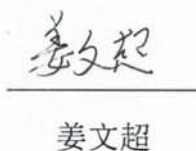 姜文超
姜文超